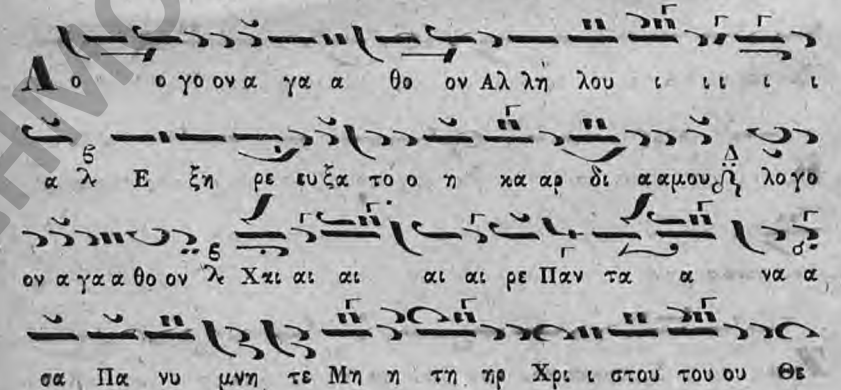 Λο ο γο ον α γα α θο ον Αλ λη λου ι ι ι ι ι
α λ Ε ξη ρε ευ ξα το ο η κα αρ δι α α μου λο γο
ον α γα α θο ον λ Χαι αι αι αι αι ρε Παν τα α να α
σα Πα νυ μνη τε Μη η τη ηρ Χρι ι στου του ου Θε